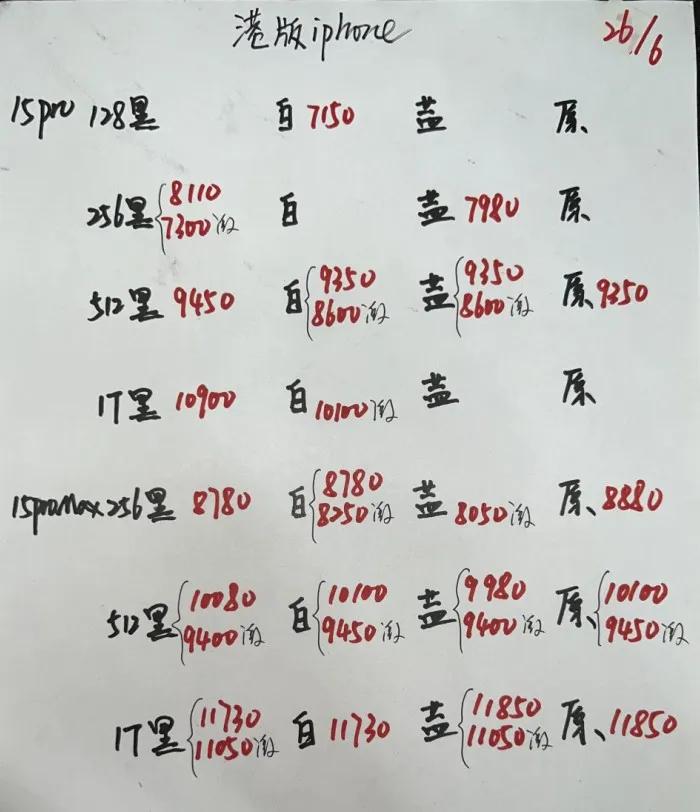 港版iphone 26/6
15pro 128黑 白 7150 蓝 原
256黑 8110 7300激 白 蓝 7980 原
512黑 9450 白 9350 8600激 蓝 9350 8600激 原 9350
1T黑 10900 白 10100激 蓝 原
15proMax 256黑 8780 白 8780 8250激 蓝 8050激 原 8880
512黑 10080 9400激 白 10100 9450激 蓝 9980 9400激 原 10100 9450激
1T黑 11730 11050激 白 11730 蓝 11850 11050激 原 11850